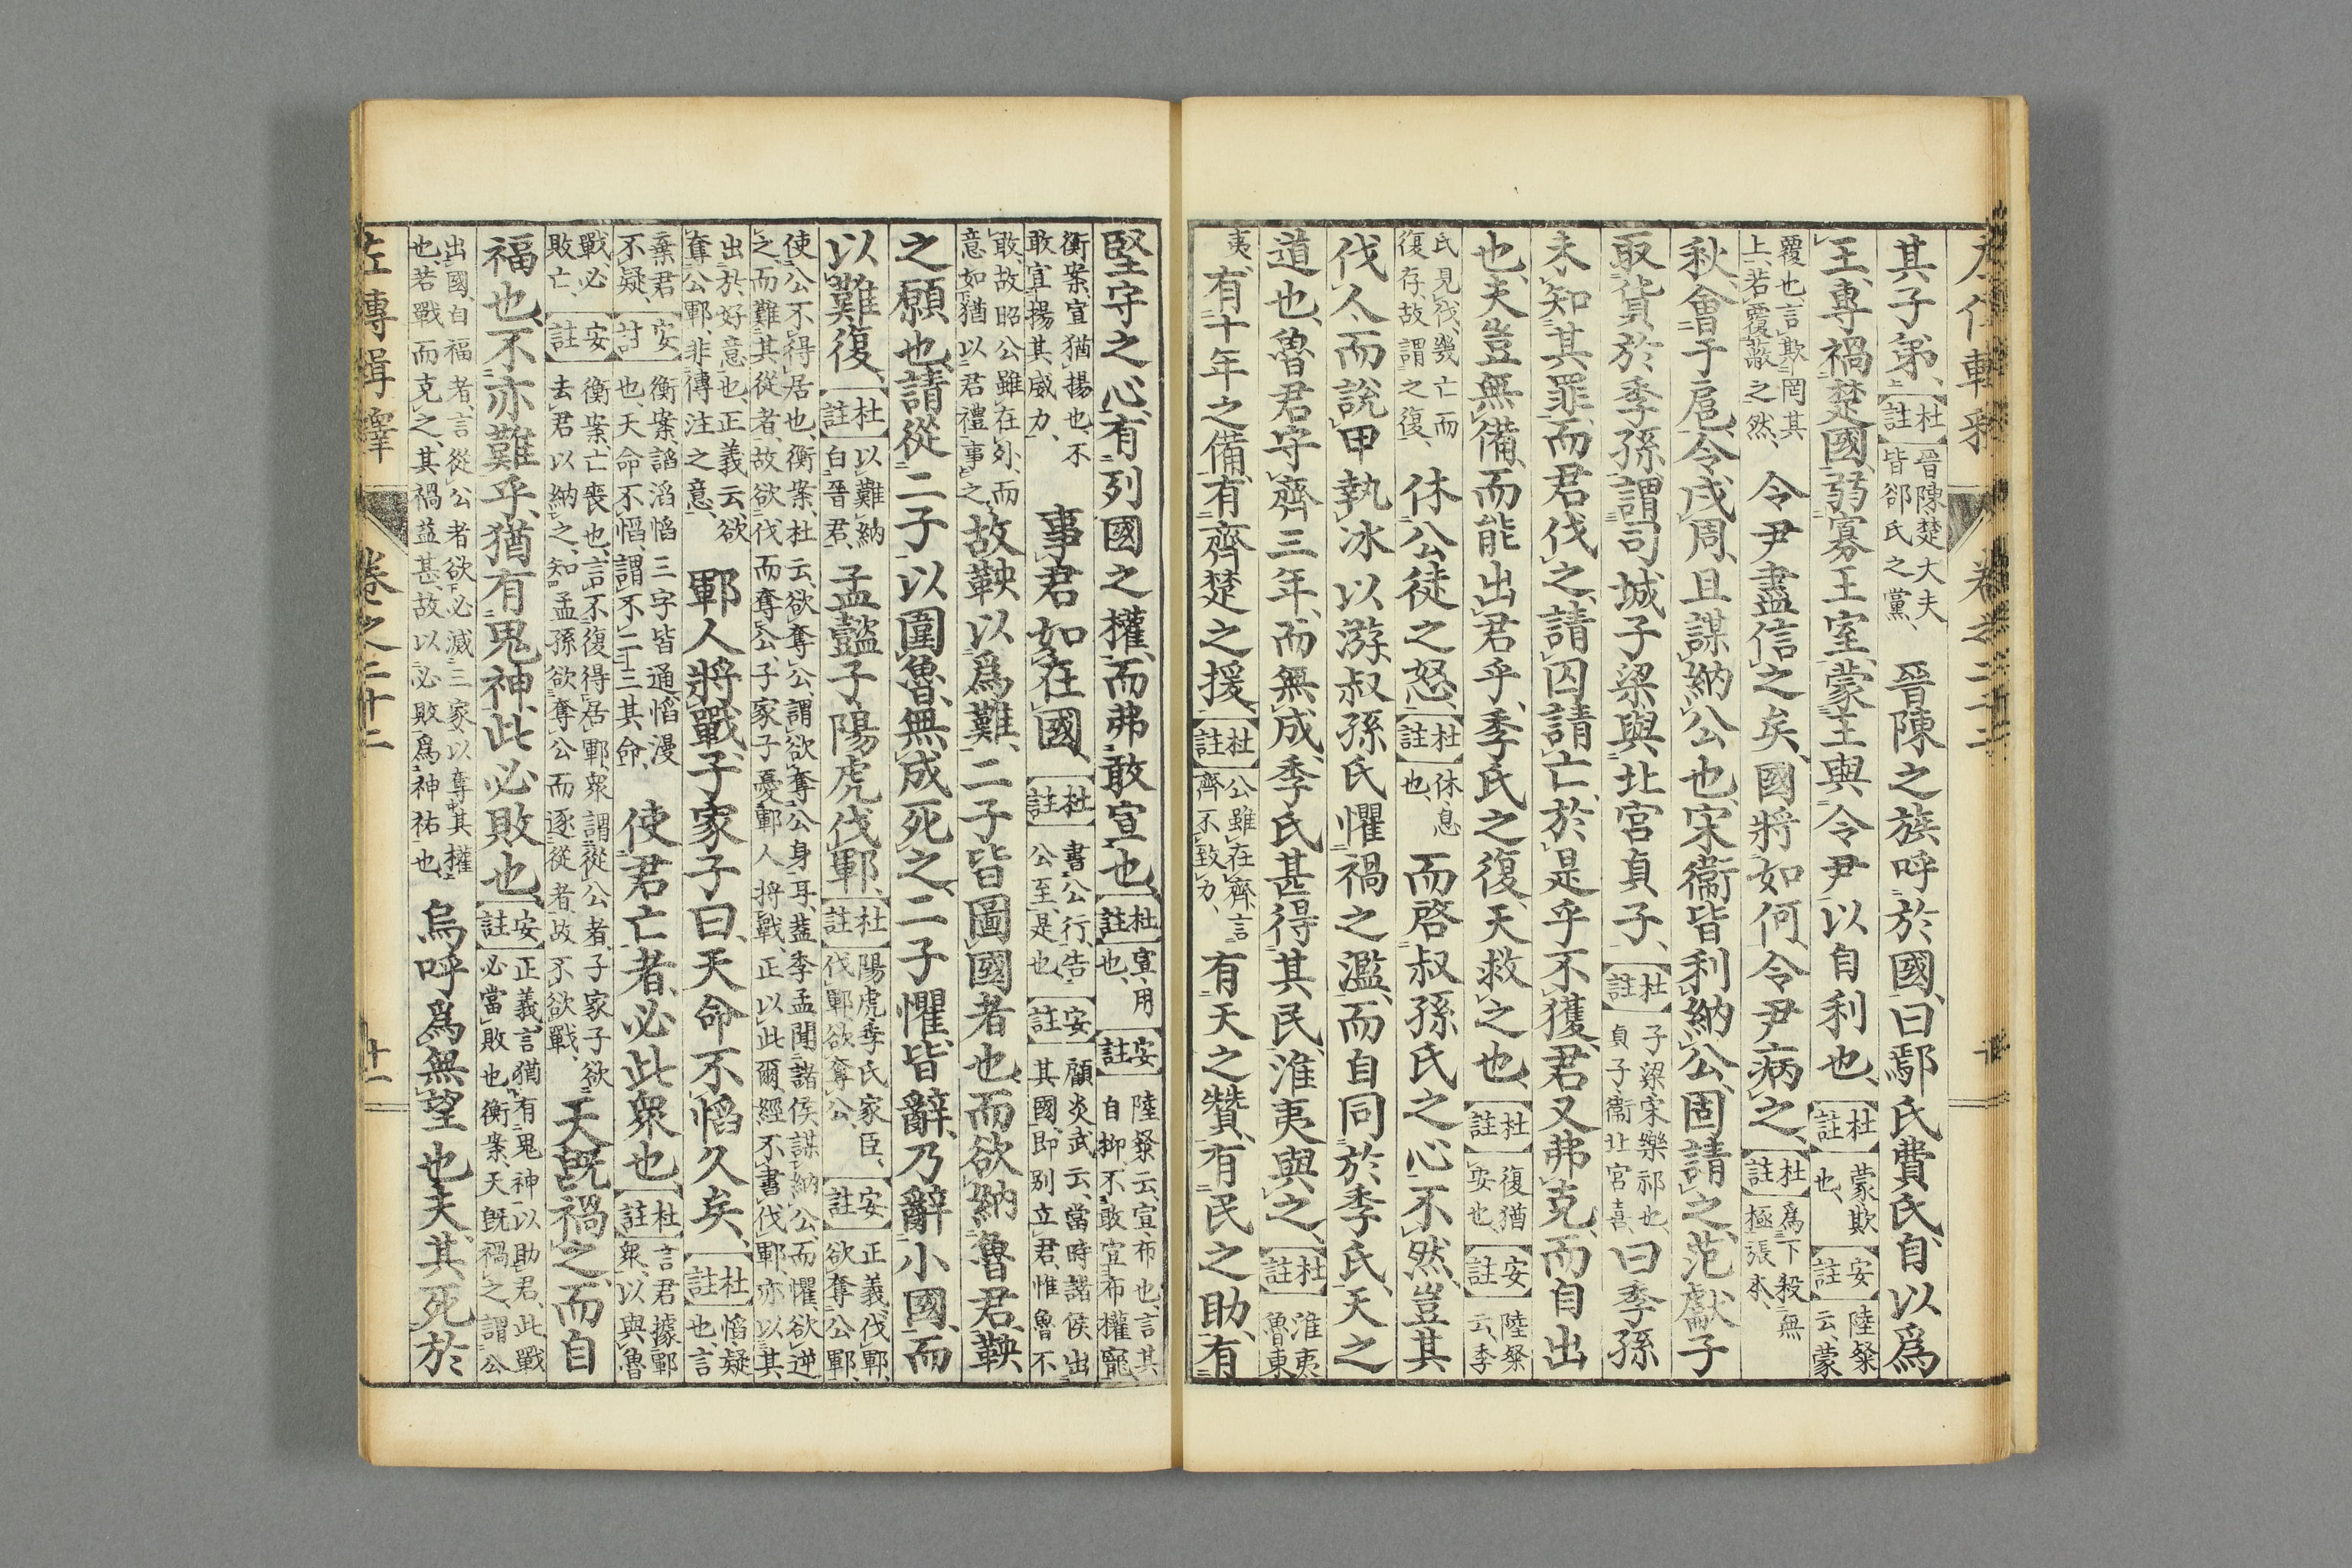 其子弟、杜註晉陳楚大夫皆郤氏之黨、晉陳之族呼於國、曰鄢氏費氏、自以爲
王、專禍楚國、弱寡王室、蒙王與令尹以自利也、杜註蒙欺也、安註陸粲云、蒙
覆也、言欺罔其上、若覆蔽之然、令尹盡信之矣、國將如何、令尹病之、杜註爲下殺無極張本、
秋、會于扈、令戍周、且謀納公也、宋衞皆利納公、固請之、范獻子
取貨於季孫、謂司城子梁與北宮貞子、杜註子梁、宋樂祁也、貞子、衞北宮喜、曰季孫
未知其罪、而君伐之、請囚請亡、於是乎不獲、君又弗克、而自出
也、夫豈無備、而能出君乎、季氏之復、天救之也、杜註復猶安也、安註陸粲云、季
氏見伐、幾亡而復存、故謂之復、休公徒之怒、杜註休、息也、而啓叔孫氏之心、不然、豈其
伐人、而說甲執冰以游、叔孫氏懼禍之濫、而自同於季氏、天之
道也、魯君守齊三年、而無成、季氏甚得其民、淮夷與之、杜註淮夷魯東
夷、有十年之備、有齊楚之援、杜註公雖在齊、言齊不致力、有天之贊、有民之助、有
堅守之心、有列國之權、而弗敢宣也、杜註宣、用也、安註陸粲云、宣、布也、言其自抑、不敢宣布權寵、
衡案、宣猶揚也、不敢宣揚其威力、事君如在國、杜註書公行、告公至、是也、安註顧炎武云、當時諸侯出其國、即別立君、惟魯不
敢、故昭公雖在外、而意如猶以君禮事之、故鞅以爲難、二子皆圖國者也、而欲納魯君、鞅
之願也、請從二子以圍魯、無成死之、二子懼、皆辭、乃辭小國、而
以難復、杜註以難納白晉君、孟懿子陽虎伐鄆、杜註陽虎、季氏家臣、伐鄆、欲奪公、安註正義、伐鄆、欲奪公鄆、
使公不得居也、衡案、杜云、欲奪公、謂欲奪公身耳、蓋季孟聞諸侯謀納公、而懼、欲逆之、而難其從者、故欲伐而奪公、子家子憂鄆人將戰、正以此爾、經不書伐鄆、亦以其
出於好意也、正義云、欲奪公鄆、非傳注之意、鄆人將戰、子家子曰、天命不慆久矣、杜註慆、疑也、言
棄君不疑、安註衡案、謟滔慆三字皆通、慆、漫也、天命不慆、謂不二三其命、使君亡者、必此衆也、杜註言君據鄆衆、以與魯
戰必敗亡、安註衡案、亡、喪也、言不復得居鄆、衆謂從公者、子家子欲去君以納之、知孟孫欲奪公而逐從者、故不欲戰、天旣禍之、而自
福也、不亦難乎、猶有鬼神、此必敗也、安註正義、言猶有鬼神以助君、此戰必當敗也、衡案、天旣禍之、謂公
出國、自福者、言從公者欲必滅三家、以奪其權也、若戰而克之、其禍益甚、故以必敗爲神祐也、烏呼、爲無望也夫、其死於
左傳輯釋 卷之二十二 廿一